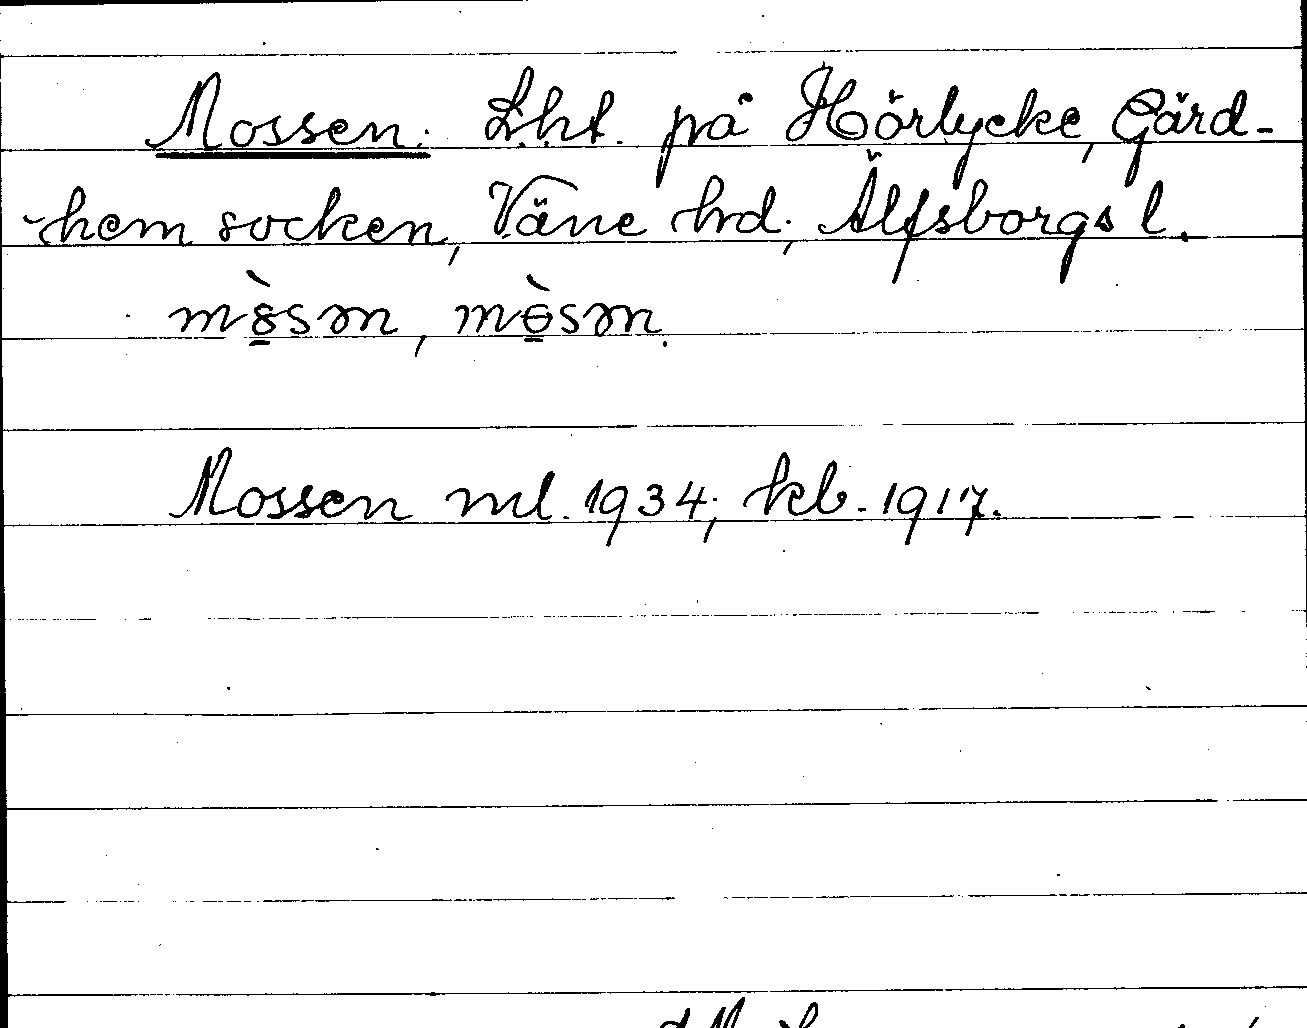 Mossen. Lht. på Hörlycke, Gärd-
hem socken, Väne hd; Älfsborgs l.
Mossen ml. 1934; kb. 1917.